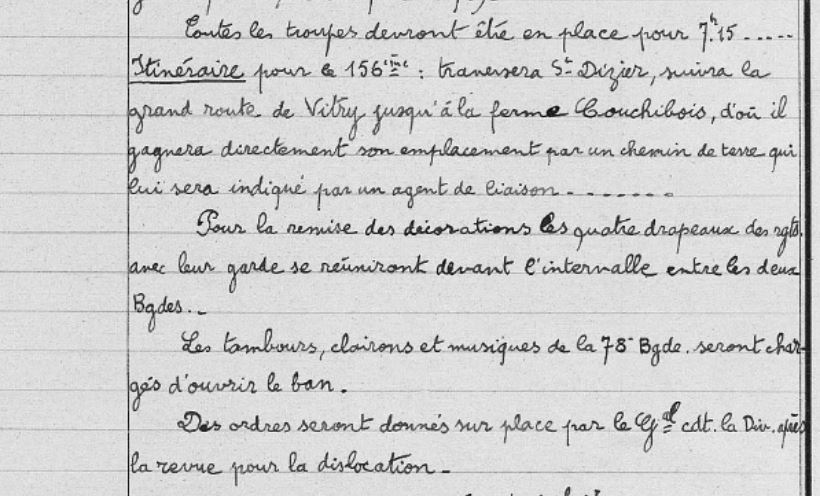 Toutes les troupes devront être en place pour 7.h15 .....
Itinéraire pour le 156ème : traversera St Dizier, suivra la
grand route de Vitry jusqu'à la ferme Couchibois, d'où il
gagnera directement son emplacement par un chemin de terre qui
lui sera indiqué par un agent de liaison ........
Pour la remise des décorations les quatre drapeaux des rgts.
avec leur garde se réuniront devant l'intervalle entre les deux
Bgdes._
Les tambours, clairons et musiques de la 78e Bgde. seront char-
gés d'ouvrir le ban.
Des ordres seront donnés sur place par le Gal cdt. la Div. après
la revue pour la dislocation _